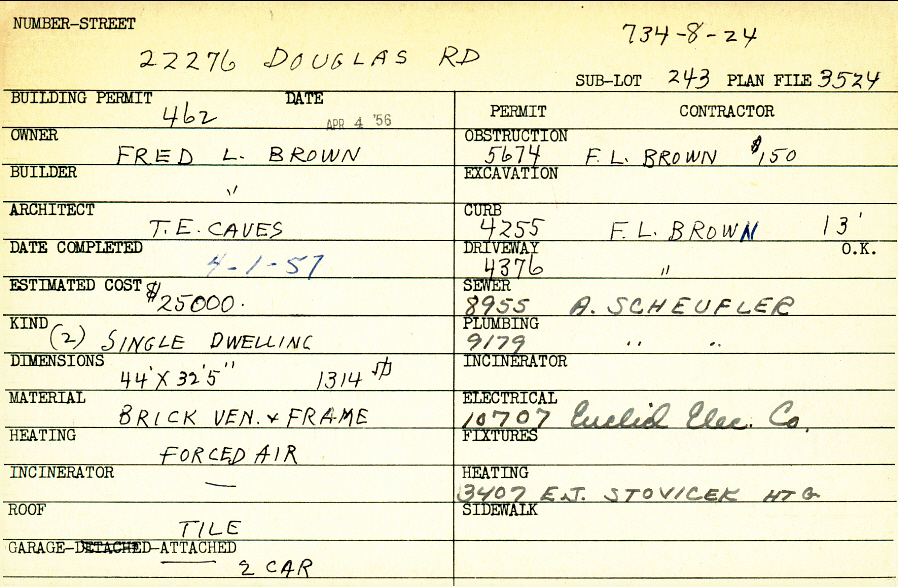 NUMBER-STREET
734-8-24
22276 DOUGLAS RD
SUB-LOT 243 PLAN FILE 3524
BUILDING PERMIT 462 DATE APR 4 '56
OWNER FRED L. BROWN
BUILDER "
ARCHITECT T.E. CAVES
DATE COMPLETED 4-1-57
ESTIMATED COST $25000.
KIND (2) SINGLE DWELLING
DIMENSIONS 44'X32'5" 1314
MATERIAL BRICK VEN. & FRAME
HEATING FORCED AIR
INCINERATOR —
ROOF TILE
GARAGE-DETACHED-ATTACHED 2 CAR
PERMIT CONTRACTOR
OBSTRUCTION 5674 F.L. BROWN $150
EXCAVATION
CURB 4255 F.L. BROWN 13'
DRIVEWAY 4376 " O.K.
SEWER 8955 A. SCHEUFLER
PLUMBING 9179 " "
INCINERATOR
ELECTRICAL 10707 Euclid Elec. Co.
FIXTURES
HEATING 3407 E.J. STOVICEK HTG
SIDEWALK